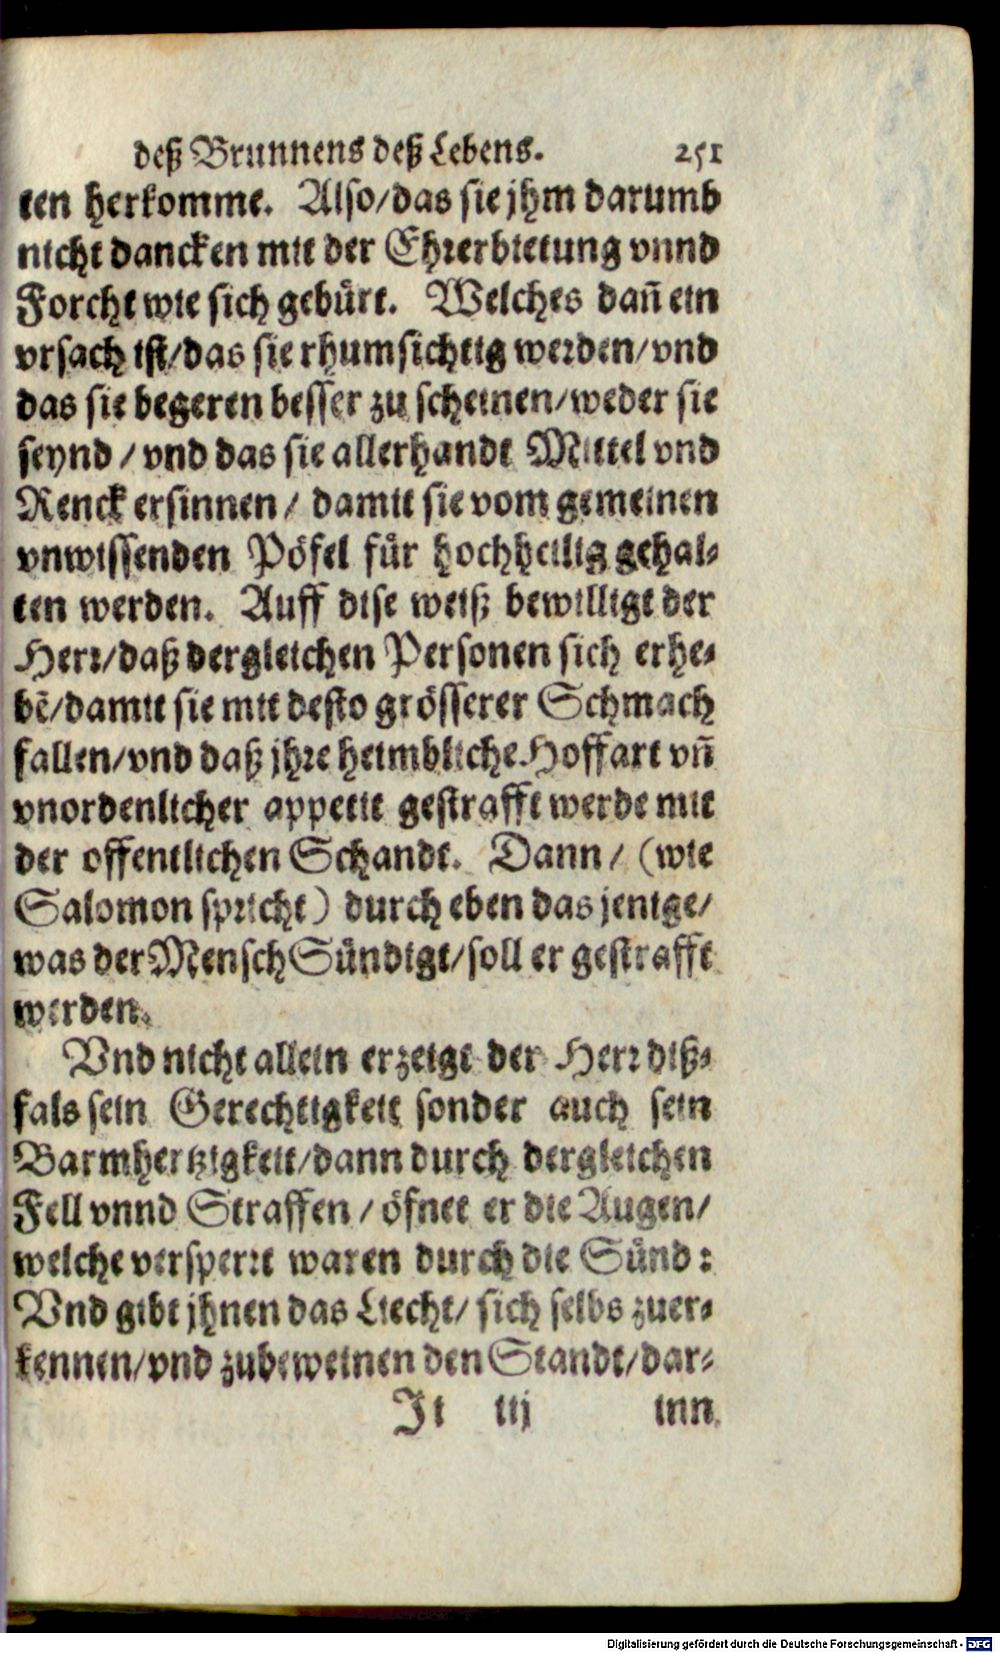 deß Brunnens deß Lebens. 251
ten herkomme. Also/das sie jhm darumb
nicht dancken mit der Ehrerbietung vnnd
Forcht wie sich gebürt. Welches dañ ein
vrsach ist/das sie rhumsichtig werden/vnd
das sie begeren besser zu scheinen/weder sie
seynd / vnd das sie allerhandt Mittel vnd
Renck ersinnen / damit sie vom gemeinen
vnwissenden Pöfel für hochheilig gehal-
ten werden. Auff dise weiß bewilligt der
Herr/daß dergleichen Personen sich erhe-
bẽ/damit sie mit desto grösserer Schmach
fallen/vnd daß jhre heimbliche Hoffart vñ
vnordenlicher appetit gestrafft werde mit
der offentlichen Schandt. Dann / (wie
Salomon spricht) durch eben das jenige/
was der Mensch Sündigt/soll er gestrafft
werden.
Vnd nicht allein erzeigt der Herr diß-
fals sein Gerechtigkeit sonder auch sein
Barmhertzigkeit/dann durch dergleichen
Fell vnnd Straffen / öfnet er die Augen/
welche versperrt waren durch die Sünd:
Vnd gibt jhnen das Liecht/ sich selbs zuer-
kennen/vnd zubeweinen den Standt/dar-
Ji iij inn
Digitalisierung gefördert durch die Deutsche Forschungsgemeinschaft - DFG